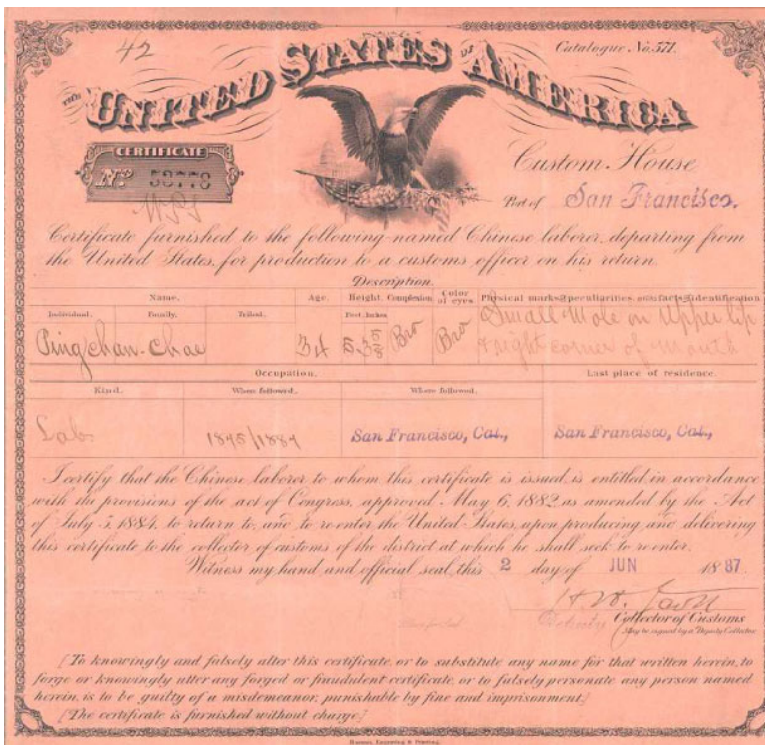 42
Catalogue No. 571.
THE UNITED STATES OF AMERICA
CERTIFICATE
No. 58779
Custom House
Port of San Francisco.
Certificate furnished to the following-named Chinese laborer, departing from
the United States, for production to a customs officer on his return.
Description.
Name. Age. Height. Complexion. Color of eyes. Physical marks or peculiarities, or facts of identification
Individual. Family. Tribal. Feet. Inches
Small Mole on Upper lip
Ping chan-Chae 34 5 3 Bro Bro right corner of Mouth
Occupation. Last place of residence.
Kind. When followed. Where followed.
Lab. 1875/1887 San Francisco, Cal., San Francisco, Cal.,
I certify that the Chinese laborer to whom this certificate is issued, is entitled, in accordance
with the provisions of the act of Congress, approved May 6, 1882, as amended by the Act
of July 5, 1884, to return to, and to re-enter the United States, upon producing and delivering
this certificate to the collector of customs of the district at which he shall seek to re-enter.
Witness my hand and official seal, this 2 day of JUN 1887.
Collector of Customs
May be signed by a Deputy Collector
[To knowingly and falsely alter this certificate, or to substitute any name for that written herein, to
forge or knowingly utter any forged or fraudulent certificate, or to falsely personate any person named
herein, is to be guilty of a misdemeanor, punishable by fine and imprisonment.]
[The certificate is furnished without charge.]